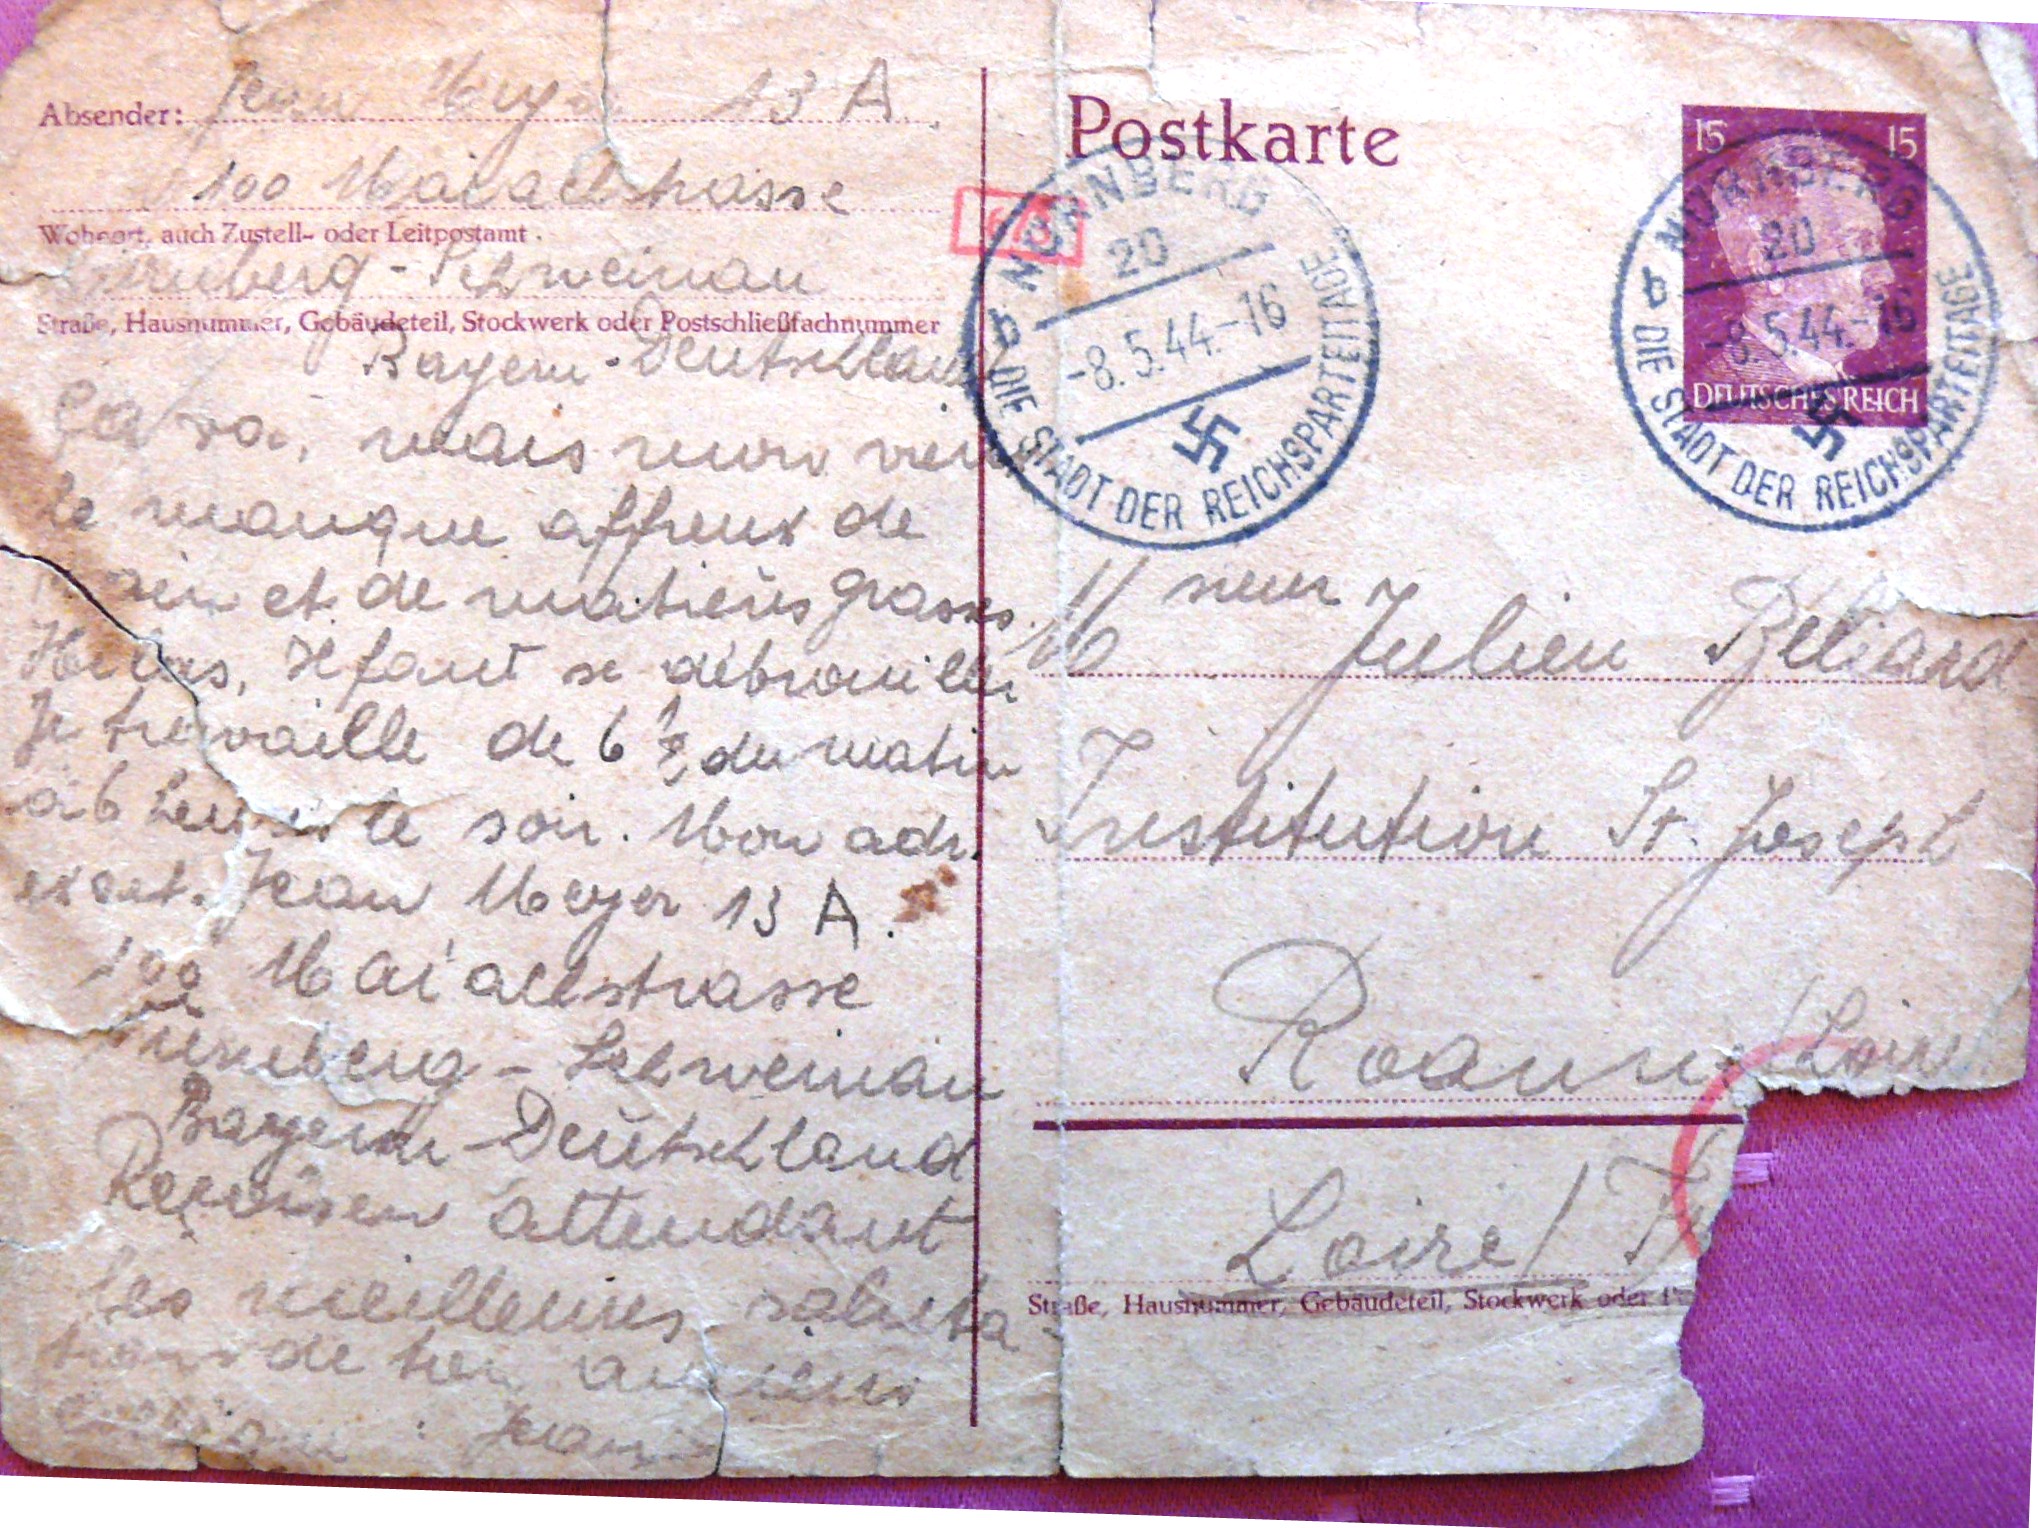 Absender: Jean Meyer 13 A.
100 Maiachstrasse
Wohnort, auch Zustell- oder Leitpostamt
Nürnberg - Schweinau
Straße, Hausnummer, Gebäudeteil, Stockwerk oder Postschließfachnummer
Bayern - Deutschland
Ça va, mais mon vieux
le manque affreux de
pain et de matières grasses.
Hélas, Il faut se débrouiller
Je travaille de 6 ½ du matin
à 6 heures le soir. Mon adr.
exact. Jean Meyer 13 A.
100 Maiachstrasse
Nürnberg - Schweinau
Bayern - Deutschland
Reçois en attendant
les meilleures saluta-
tions de ton ancien
Jean
Postkarte
15 15
DEUTSCHES REICH
NÜRNBERG
20
-8.5.44.-16
b
DIE STADT DER REICHSPARTEITAGE
NÜRNBERG
20
-8.5.44.-16
b
DIE STADT DER REICHSPARTEITAGE
Monsieur Julien Béliard
Institution St. Joseph
Roanne (Loire)
Loire/
Straße, Hausnummer, Gebäudeteil, Stockwerk oder